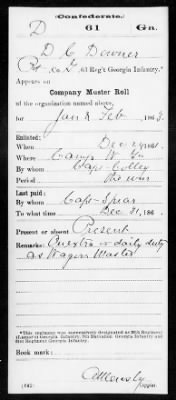 (Confederate.)
D 61 Ga.
D C Downer
Pvt, Co. I, 61 Reg't Georgia Infantry.*
Appears on
Company Muster Roll
of the organization named above,
for Jan & Feb, 1863.
Enlisted:
When Dec 2, 1861.
Where Camp W Ga
By whom Capt Colley
Period the war
Last paid:
By whom Capt Spear
To what time Dec 31, 186
Present or absent Present
Remarks: On extra or daily duty
as Wagon Master
Book mark:
(642) Copyist.